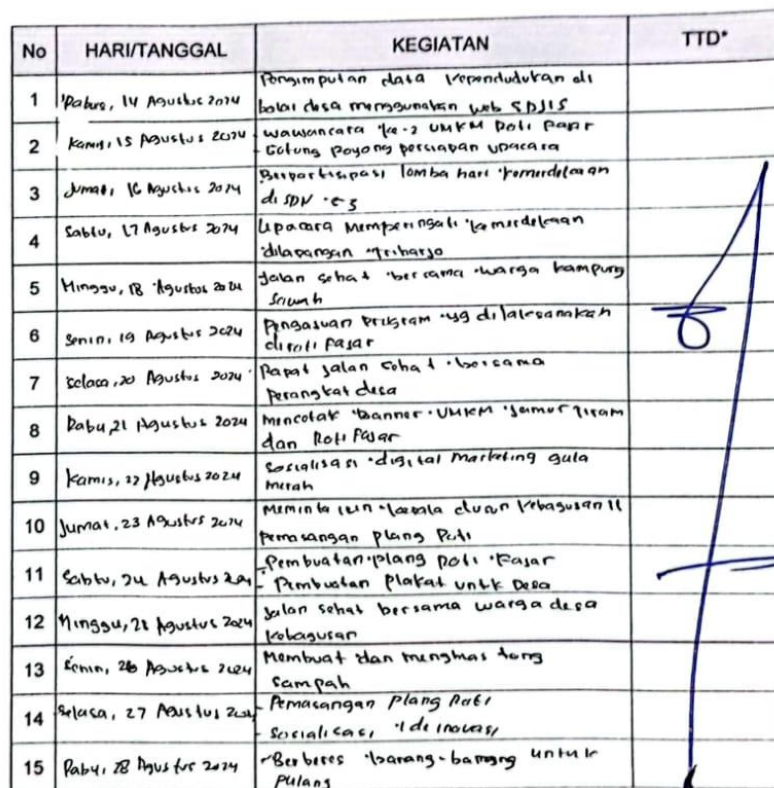 No HARI/TANGGAL KEGIATAN TTD*
1 Rabu, 14 Agustus 2024 Pengimputan data kependudukan di
balai desa menggunakan web SDJIS
2 Kamis, 15 Agustus 2024 - wawancara ke-2 UMKM Roti Pasar
- Gotong Royong persiapan upacara
3 Jumat, 16 Agustus 2024 Berpartisipasi lomba hari kemerdekaan
di SDN
4 Sabtu, 17 Agustus 2024 Upacara Memperingati kemerdekaan
dilapangan Triharjo
5 Minggu, 18 Agustus 2024 Jalan sehat bersama warga kampung
Sawah
6 Senin, 19 Agustus 2024 Pengasuan Program yg dilaksanakan
di roti Pasar
7 Selasa, 20 Agustus 2024 Rapat jalan sehat bersama
Perangkat desa
8 Rabu, 21 Agustus 2024 Mencetak Banner UMKM Jamur Tiram
dan Roti Pasar
9 Kamis, 22 Agustus 2024 Sosialisasi digital marketing gula
merah
10 Jumat, 23 Agustus 2024 Meminta izin kepala dusun Kebagusan II
Pemasangan Plang Roti
11 Sabtu, 24 Agustus - Pembuatan plang roti Pasar
- Pembuatan Plakat untk Desa
12 Minggu, 25 Agustus 2024 Jalan sehat bersama warga desa
Kebagusan
13 Senin, 26 Agustus 2024 Membuat dan menghias tong
Sampah
14 Selasa, 27 Agustus 2024 - Pemasangan Plang Roti
- Sosialisasi ide inovasi
15 Rabu, 28 Agustus 2024 - Berberes barang-barang untuk
Pulang